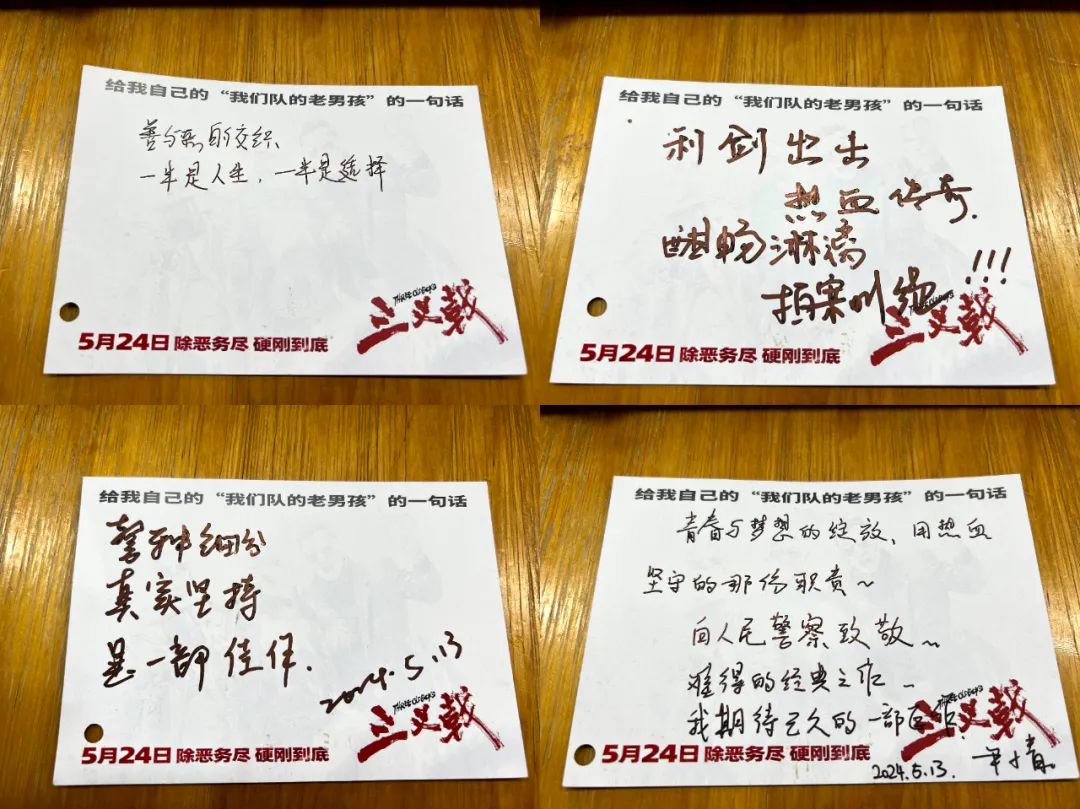 给我自己的“我们队的老男孩”的一句话
善与恶的交织
一半是人生，一半是选择
THREE OLD BOYS
三叉戟
5月24日 除恶务尽 硬刚到底
给我自己的“我们队的老男孩”的一句话
利剑出击
热血传奇.
酣畅淋漓
拍案叫绝!!!
THREE OLD BOYS
三叉戟
5月24日 除恶务尽 硬刚到底
给我自己的“我们队的老男孩”的一句话
真实坚持
是一部佳作.
2024.5.13
THREE OLD BOYS
三叉戟
5月24日 除恶务尽 硬刚到底
给我自己的“我们队的老男孩”的一句话
青春与梦想的绽放，用热血
坚守的那份职责~
向人民警察致敬~
难得的经典之作~
我期待已久的一部
THREE OLD BOYS
三叉戟
5月24日 除恶务尽 硬刚到底
2024.5.13.